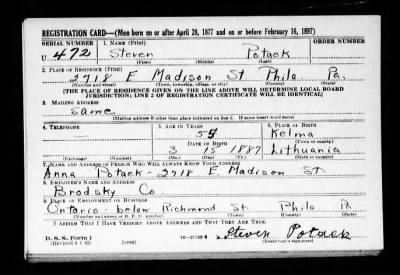 REGISTRATION CARD—(Men born on or after April 28, 1877 and on or before February 16, 1897)
SERIAL NUMBER 1. NAME (Print) ORDER NUMBER
U 472 Steven Potack
(First) (Middle) (Last)
2. PLACE OF RESIDENCE (Print)
2718 E Madison St Phila Pa.
(Number and street) (Town, township, village, or city) (County) (State)
[THE PLACE OF RESIDENCE GIVEN ON THE LINE ABOVE WILL DETERMINE LOCAL BOARD
JURISDICTION; LINE 2 OF REGISTRATION CERTIFICATE WILL BE IDENTICAL]
3. MAILING ADDRESS
Same
[Mailing address if other than place indicated on line 2. If same insert word same]
4. TELEPHONE 5. AGE IN YEARS 6. PLACE OF BIRTH
54 Kelma
DATE OF BIRTH (Town or county)
3 15 1887 Lithuania
(Exchange) (Number) (Mo.) (Day) (Yr.) (State or country)
7. NAME AND ADDRESS OF PERSON WHO WILL ALWAYS KNOW YOUR ADDRESS
Anna Potack - 2718 E Madison St
8. EMPLOYER'S NAME AND ADDRESS
Brodsky Co.
9. PLACE OF EMPLOYMENT OR BUSINESS
Ontario - below Richmond St Phila Pa
(Number and street or R. F. D. number) (Town) (County) (State)
I AFFIRM THAT I HAVE VERIFIED ABOVE ANSWERS AND THAT THEY ARE TRUE.
D. S. S. Form 1
(Revised 4-1-42) (over)
Steven Potack
(Registrant's signature)